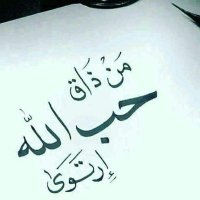 مَنْ ذَاقَ
حب الله
إِرتَوَىٰ